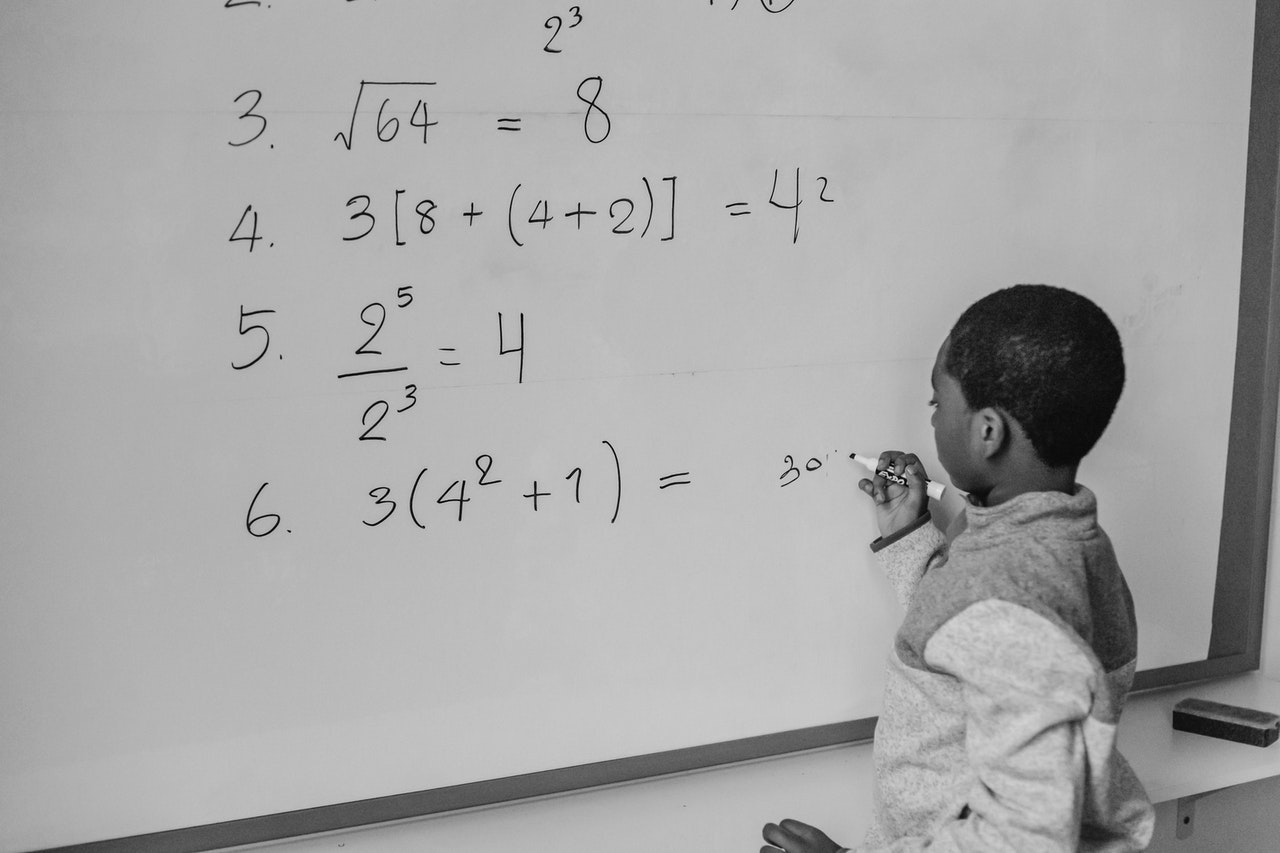 2³
3. √64 = 8
4. 3[8 + (4+2)] = 4²
5. 2⁵/2³ = 4
6. 3(4² + 1) = 30